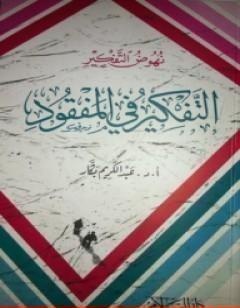 نُهُوضُ التَّفْكِيْرِ
التَّفْكِيْرُ فِي المَفْقُود
أ.د. عبد الكريم بكار